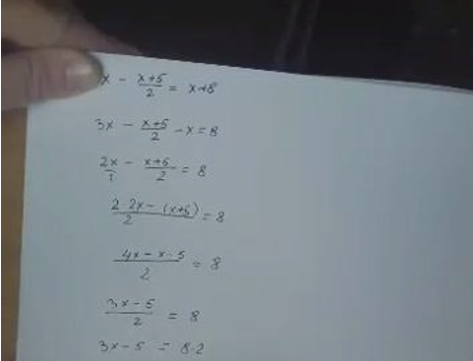 x - (x+5)/2 = x+8
3x - (x+5)/2 - x = 8
2x/1 - (x+5)/2 = 8
(2·2x - (x+5))/2 = 8
(4x - x - 5)/2 = 8
(3x - 5)/2 = 8
3x - 5 = 8·2